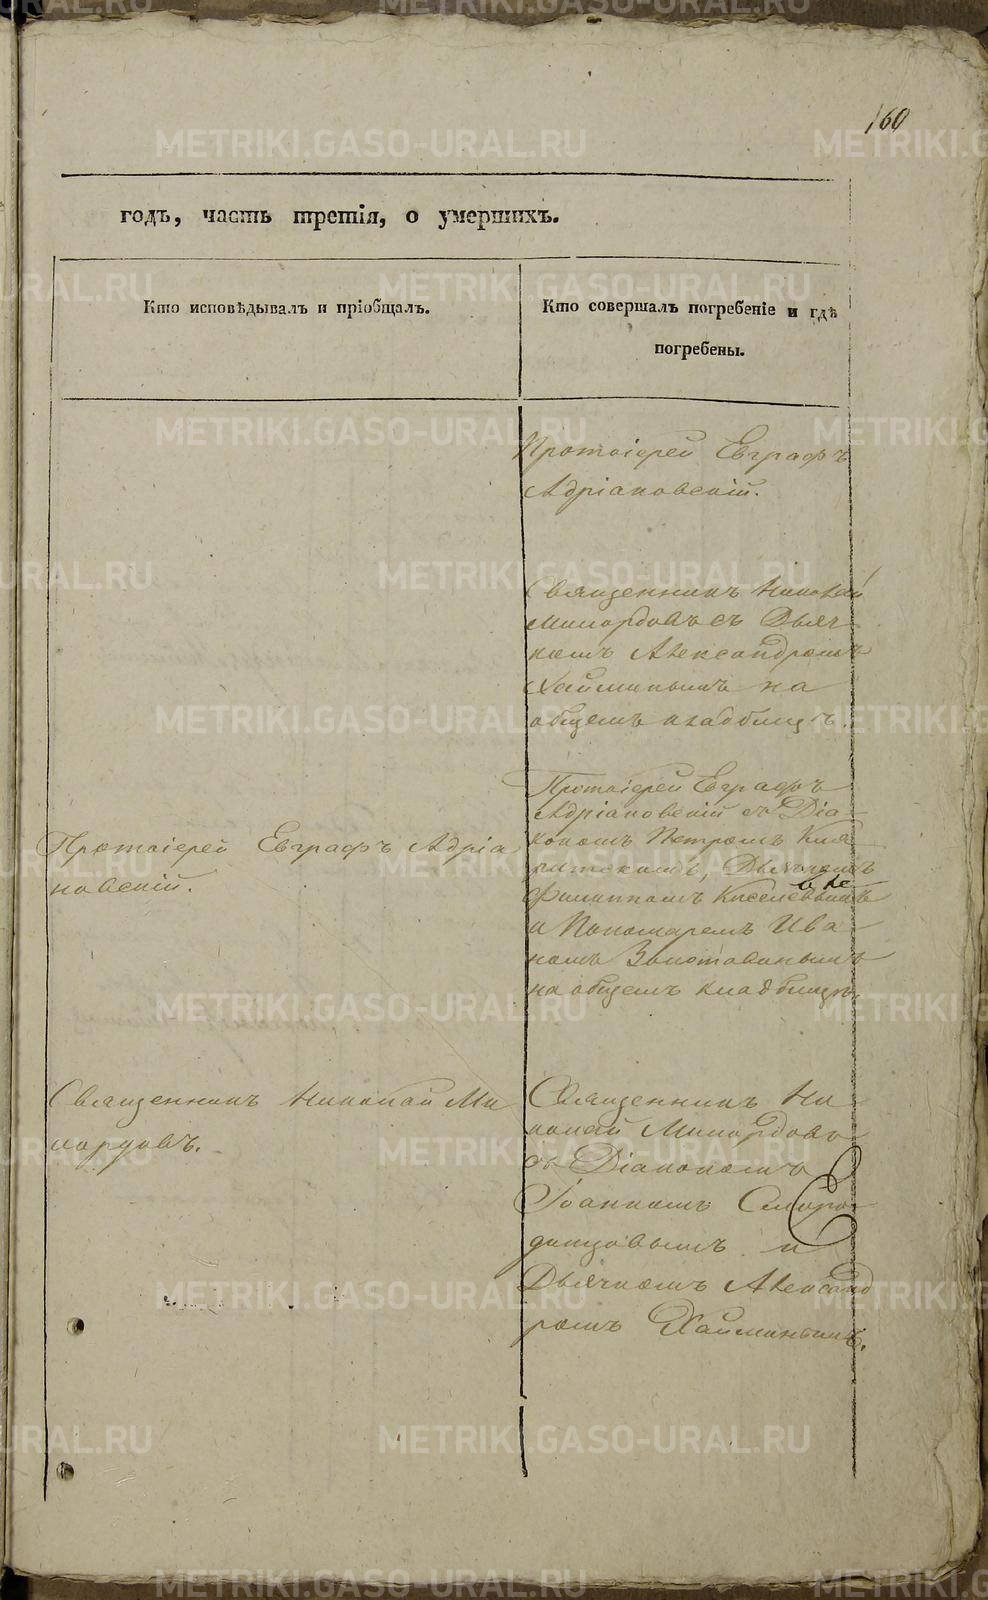 160
годъ, часть третія, о умершихъ.
Кто исповѣдывалъ и пріобщалъ.
Кто совершалъ погребеніе и гдѣ
погребены.
Протоіерей Евграфъ
Адріановскій.
Священникъ Николай
Милордовъ съ Дьяч-
комъ Александромъ
Хайминымъ на
общемъ кладбищѣ.
Протоіерей Евграфъ
Адріановскій съ Діа-
кономъ Петромъ
Дьячкомъ
Филиппомъ Киселевымъ
и Пономаремъ Ива-
номъ Золотавинымъ
на общемъ кладбищѣ.
Протоіерей Евграфъ Адріа
новскій.
Священникъ Николай Ми
лордовъ.
Священникъ Ни-
колай Милордовъ
съ Діакономъ
Іоанномъ Смиро-
динцовымъ и
Дьячкомъ Александ
ромъ Хайминымъ.
METRIKI.GASO-URAL.RU